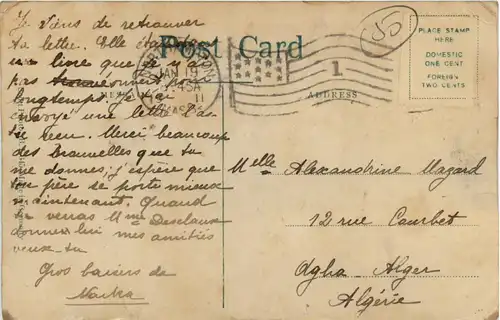 Post Card
PLACE STAMP
HERE
DOMESTIC
ONE CENT
FOREIGN
TWO CENTS
50
JAN 19
11
MASS
1
ADDRESS
Je viens de retrouver
ta lettre. Elle était
un livre que je n'ai
pas
longtemps. Je t'ai
envoyé une lettre l'as-
tu reçu. Merci beaucoup
des nouvelles que tu
me donnes; j'espère que
ton père se porte mieux
maintenant. Quand
tu verras Mme Desclaux
donne lui mes amitiés
veux-tu
Gros baisers de
Melle Alexandrine Mazard
12 rue Courbet
Agha - Alger
Algérie